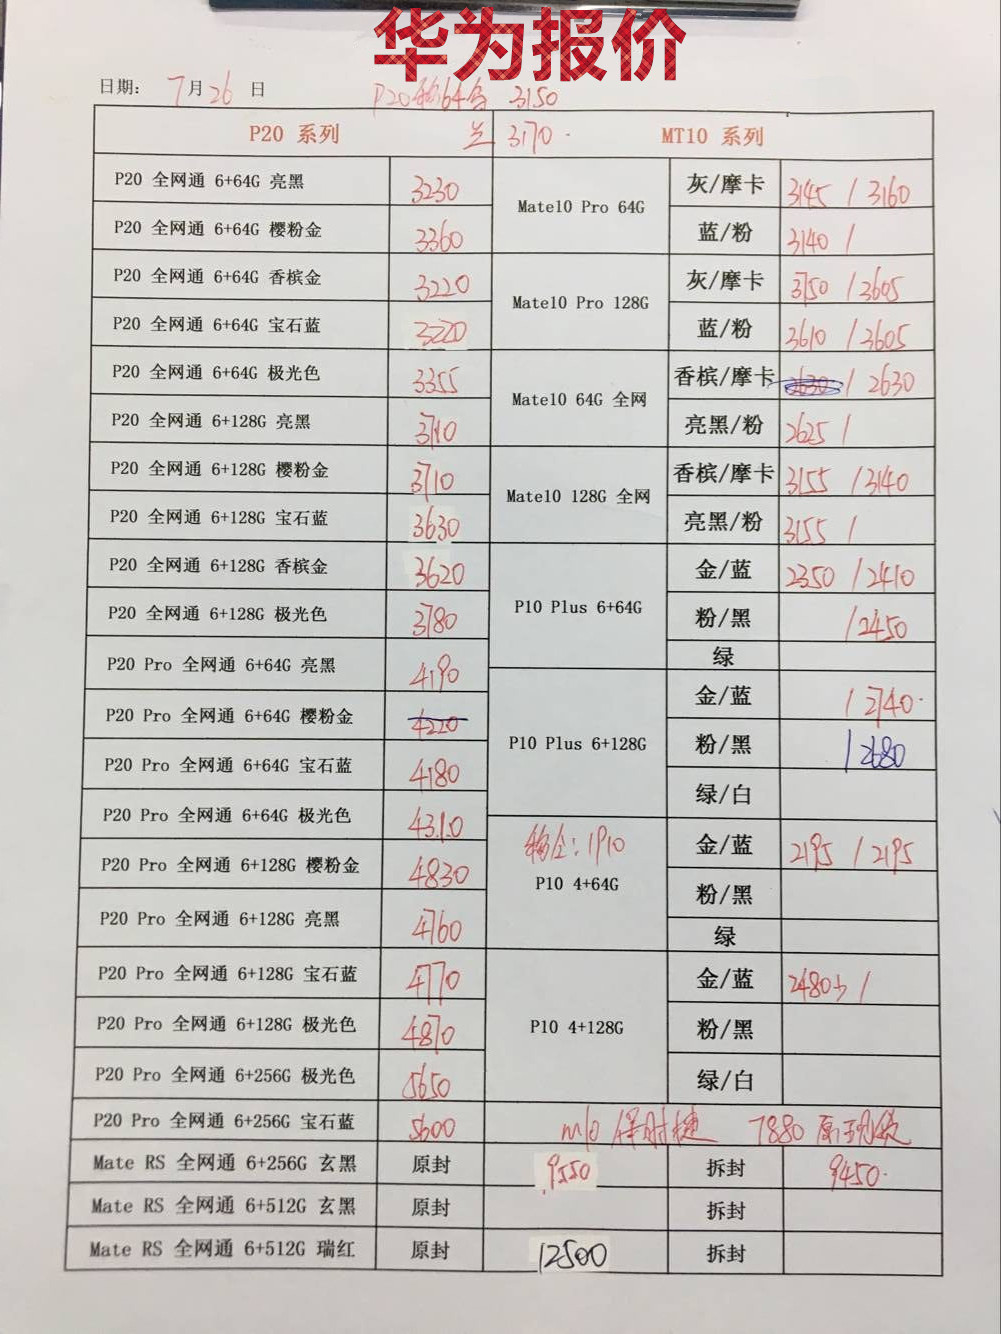 华为报价
日期: 7月26日 P20 64 3150
P20 系列 兰 3170 MT10 系列
P20 全网通 6+64G 亮黑 3230 Mate10 Pro 64G 灰/摩卡 3145 / 3160
P20 全网通 6+64G 樱粉金 3360 蓝/粉 3140 /
P20 全网通 6+64G 香槟金 3220 Mate10 Pro 128G 灰/摩卡 / 3605
P20 全网通 6+64G 宝石蓝 3220 蓝/粉 3610 / 3605
P20 全网通 6+64G 极光色 3355 Mate10 64G 全网 香槟/摩卡 / 2630
P20 全网通 6+128G 亮黑 3710 亮黑/粉 2625 /
P20 全网通 6+128G 樱粉金 3710 Mate10 128G 全网 香槟/摩卡 3155 / 3140
P20 全网通 6+128G 宝石蓝 3630 亮黑/粉 3155 /
P20 全网通 6+128G 香槟金 3620 P10 Plus 6+64G 金/蓝 2350 / 2410
P20 全网通 6+128G 极光色 3780 粉/黑 / 2450
绿
P20 Pro 全网通 6+64G 亮黑 4190 P10 Plus 6+128G 金/蓝 / 2740
P20 Pro 全网通 6+64G 樱粉金 4220 粉/黑 / 2680
P20 Pro 全网通 6+64G 宝石蓝 4180 绿/白
P20 Pro 全网通 6+64G 极光色 4310 P10 4+64G 1910 金/蓝 2195 / 2195
P20 Pro 全网通 6+128G 樱粉金 4830 粉/黑
P20 Pro 全网通 6+128G 亮黑 4760 绿
P20 Pro 全网通 6+128G 宝石蓝 4770 P10 4+128G 金/蓝 2480 /
P20 Pro 全网通 6+128G 极光色 4870 粉/黑
P20 Pro 全网通 6+256G 极光色 5650 绿/白
P20 Pro 全网通 6+256G 宝石蓝 5600 m10 保时捷 7880
Mate RS 全网通 6+256G 玄黑 原封 9550 拆封 9450
Mate RS 全网通 6+512G 玄黑 原封 拆封
Mate RS 全网通 6+512G 瑞红 原封 12500 拆封